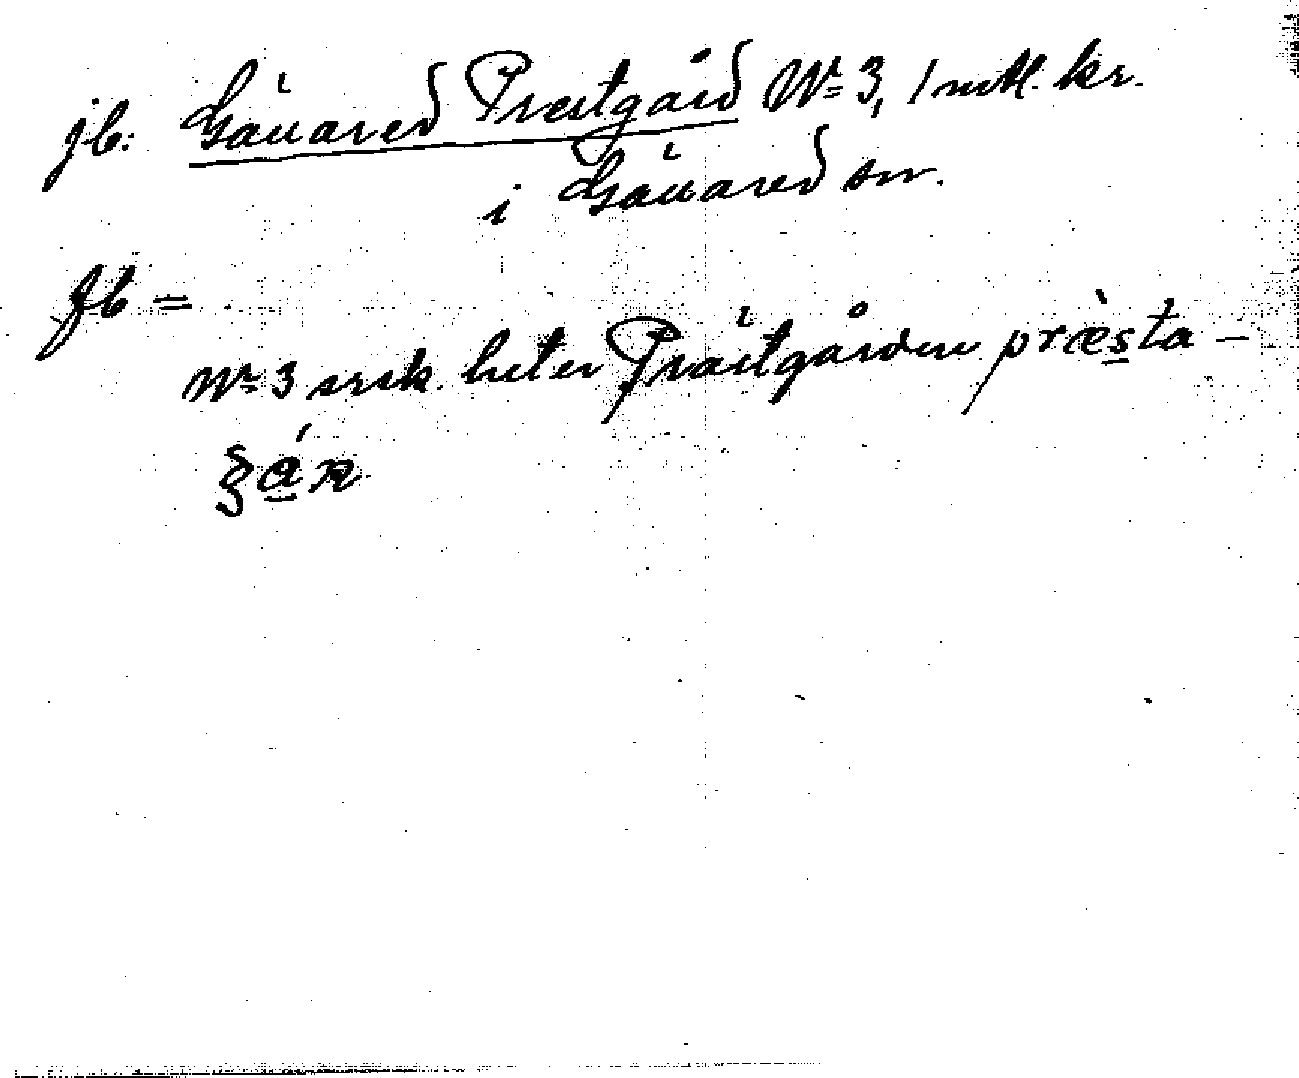 jb: Gällared Prestgård No 3, 1 mtl. kr.
i Gällared sn.
fb =
No 3 srsk. heter Prästgården præsta-
går